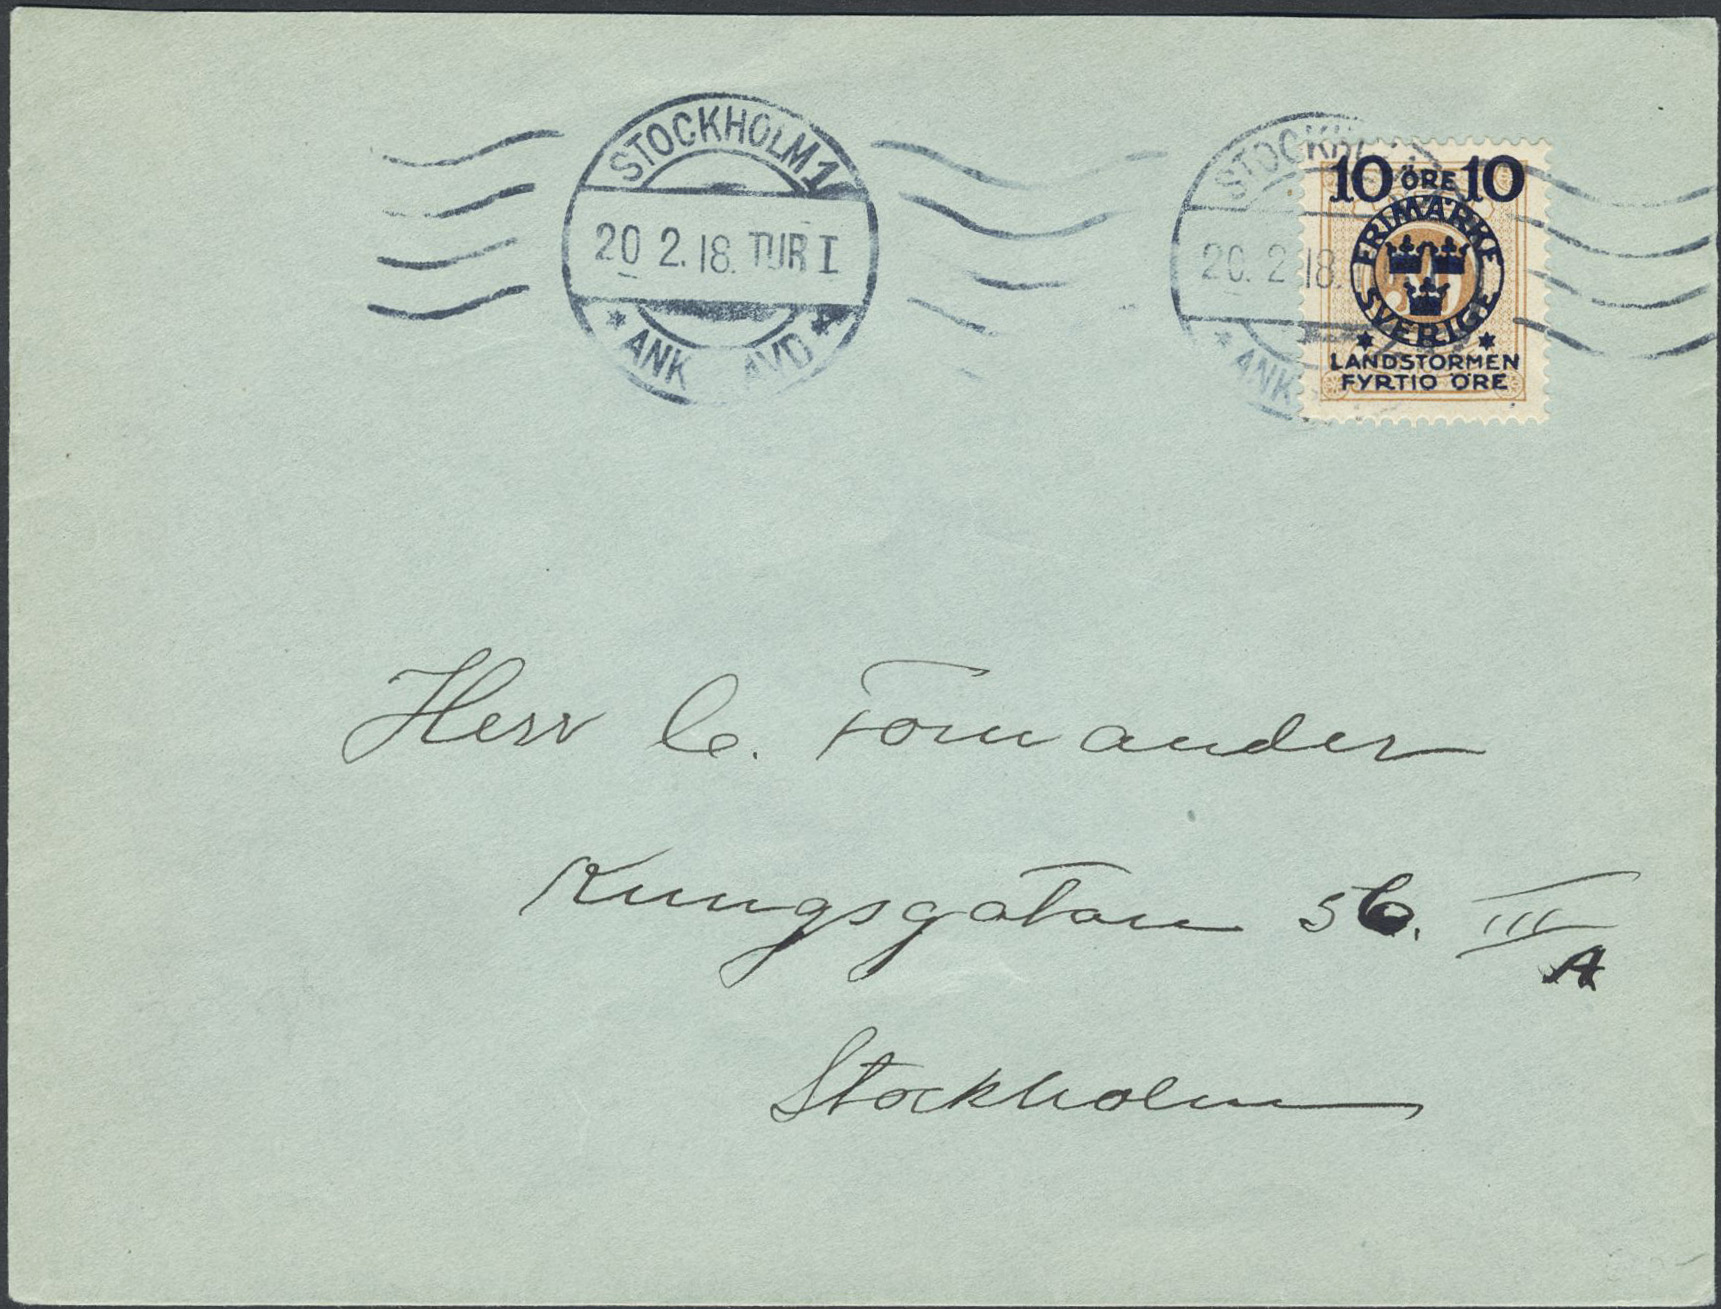 STOCKHOLM 1
20 2.18. TUR I
* ANK AVD *
STOCKH
20. 2 18.
* ANK
10 ÖRE 10
FRIMÄRKE
SVERIGE
LANDSTORMEN
FYRTIO ÖRE
Herr C. Fornander
Kungsgatan 56. III
A
Stockholm